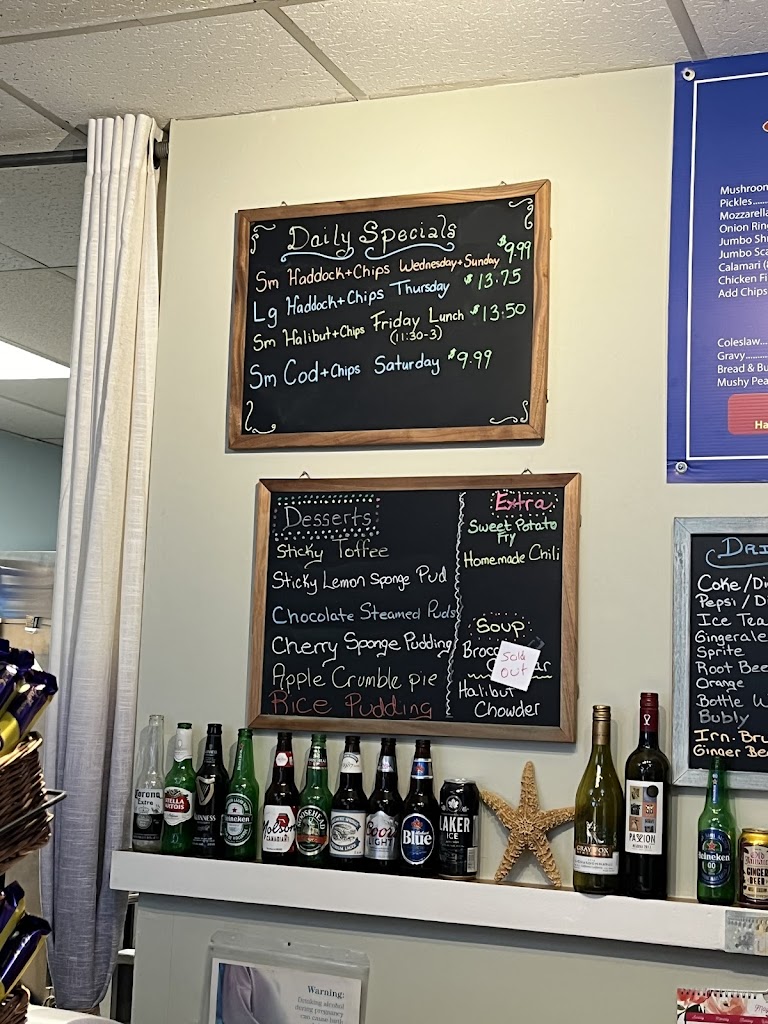 Daily Specials
Sm Haddock+Chips Wednesday+Sunday $9.99
Lg Haddock+Chips Thursday $13.75
Sm Halibut+Chips Friday Lunch $13.50
(11:30-3)
Sm Cod+Chips Saturday $9.99
Desserts
Sticky Toffee
Sticky Lemon Sponge Pud
Chocolate Steamed Puds
Cherry Sponge Pudding
Apple Crumble pie
Rice Pudding
Extra
Sweet Potato
Fry
Homemade Chili
Soup
Sold
out
Halibut
Chowder
Mushroom
Pickles
Mozzarella
Onion Ring
Jumbo
Jumbo
Calamari
Chicken
Add Chips
Coleslaw
Gravy
Bread &
Mushy
Coke
Pepsi
Ice Tea
Gingerale
Sprite
Root
Orange
Bottle
Bubly
Irn-
Ginger
Corona
Extra
STELLA
ARTOIS
GUINNESS
Heineken
Molson
CANADIAN
MOOSEHEAD
Coors
LIGHT
Blue
LAKER
ICE
PASSION
Heineken
0.0
GINGER
BEER
Warning:
Drinking alcohol
during pregnancy
can cause birth